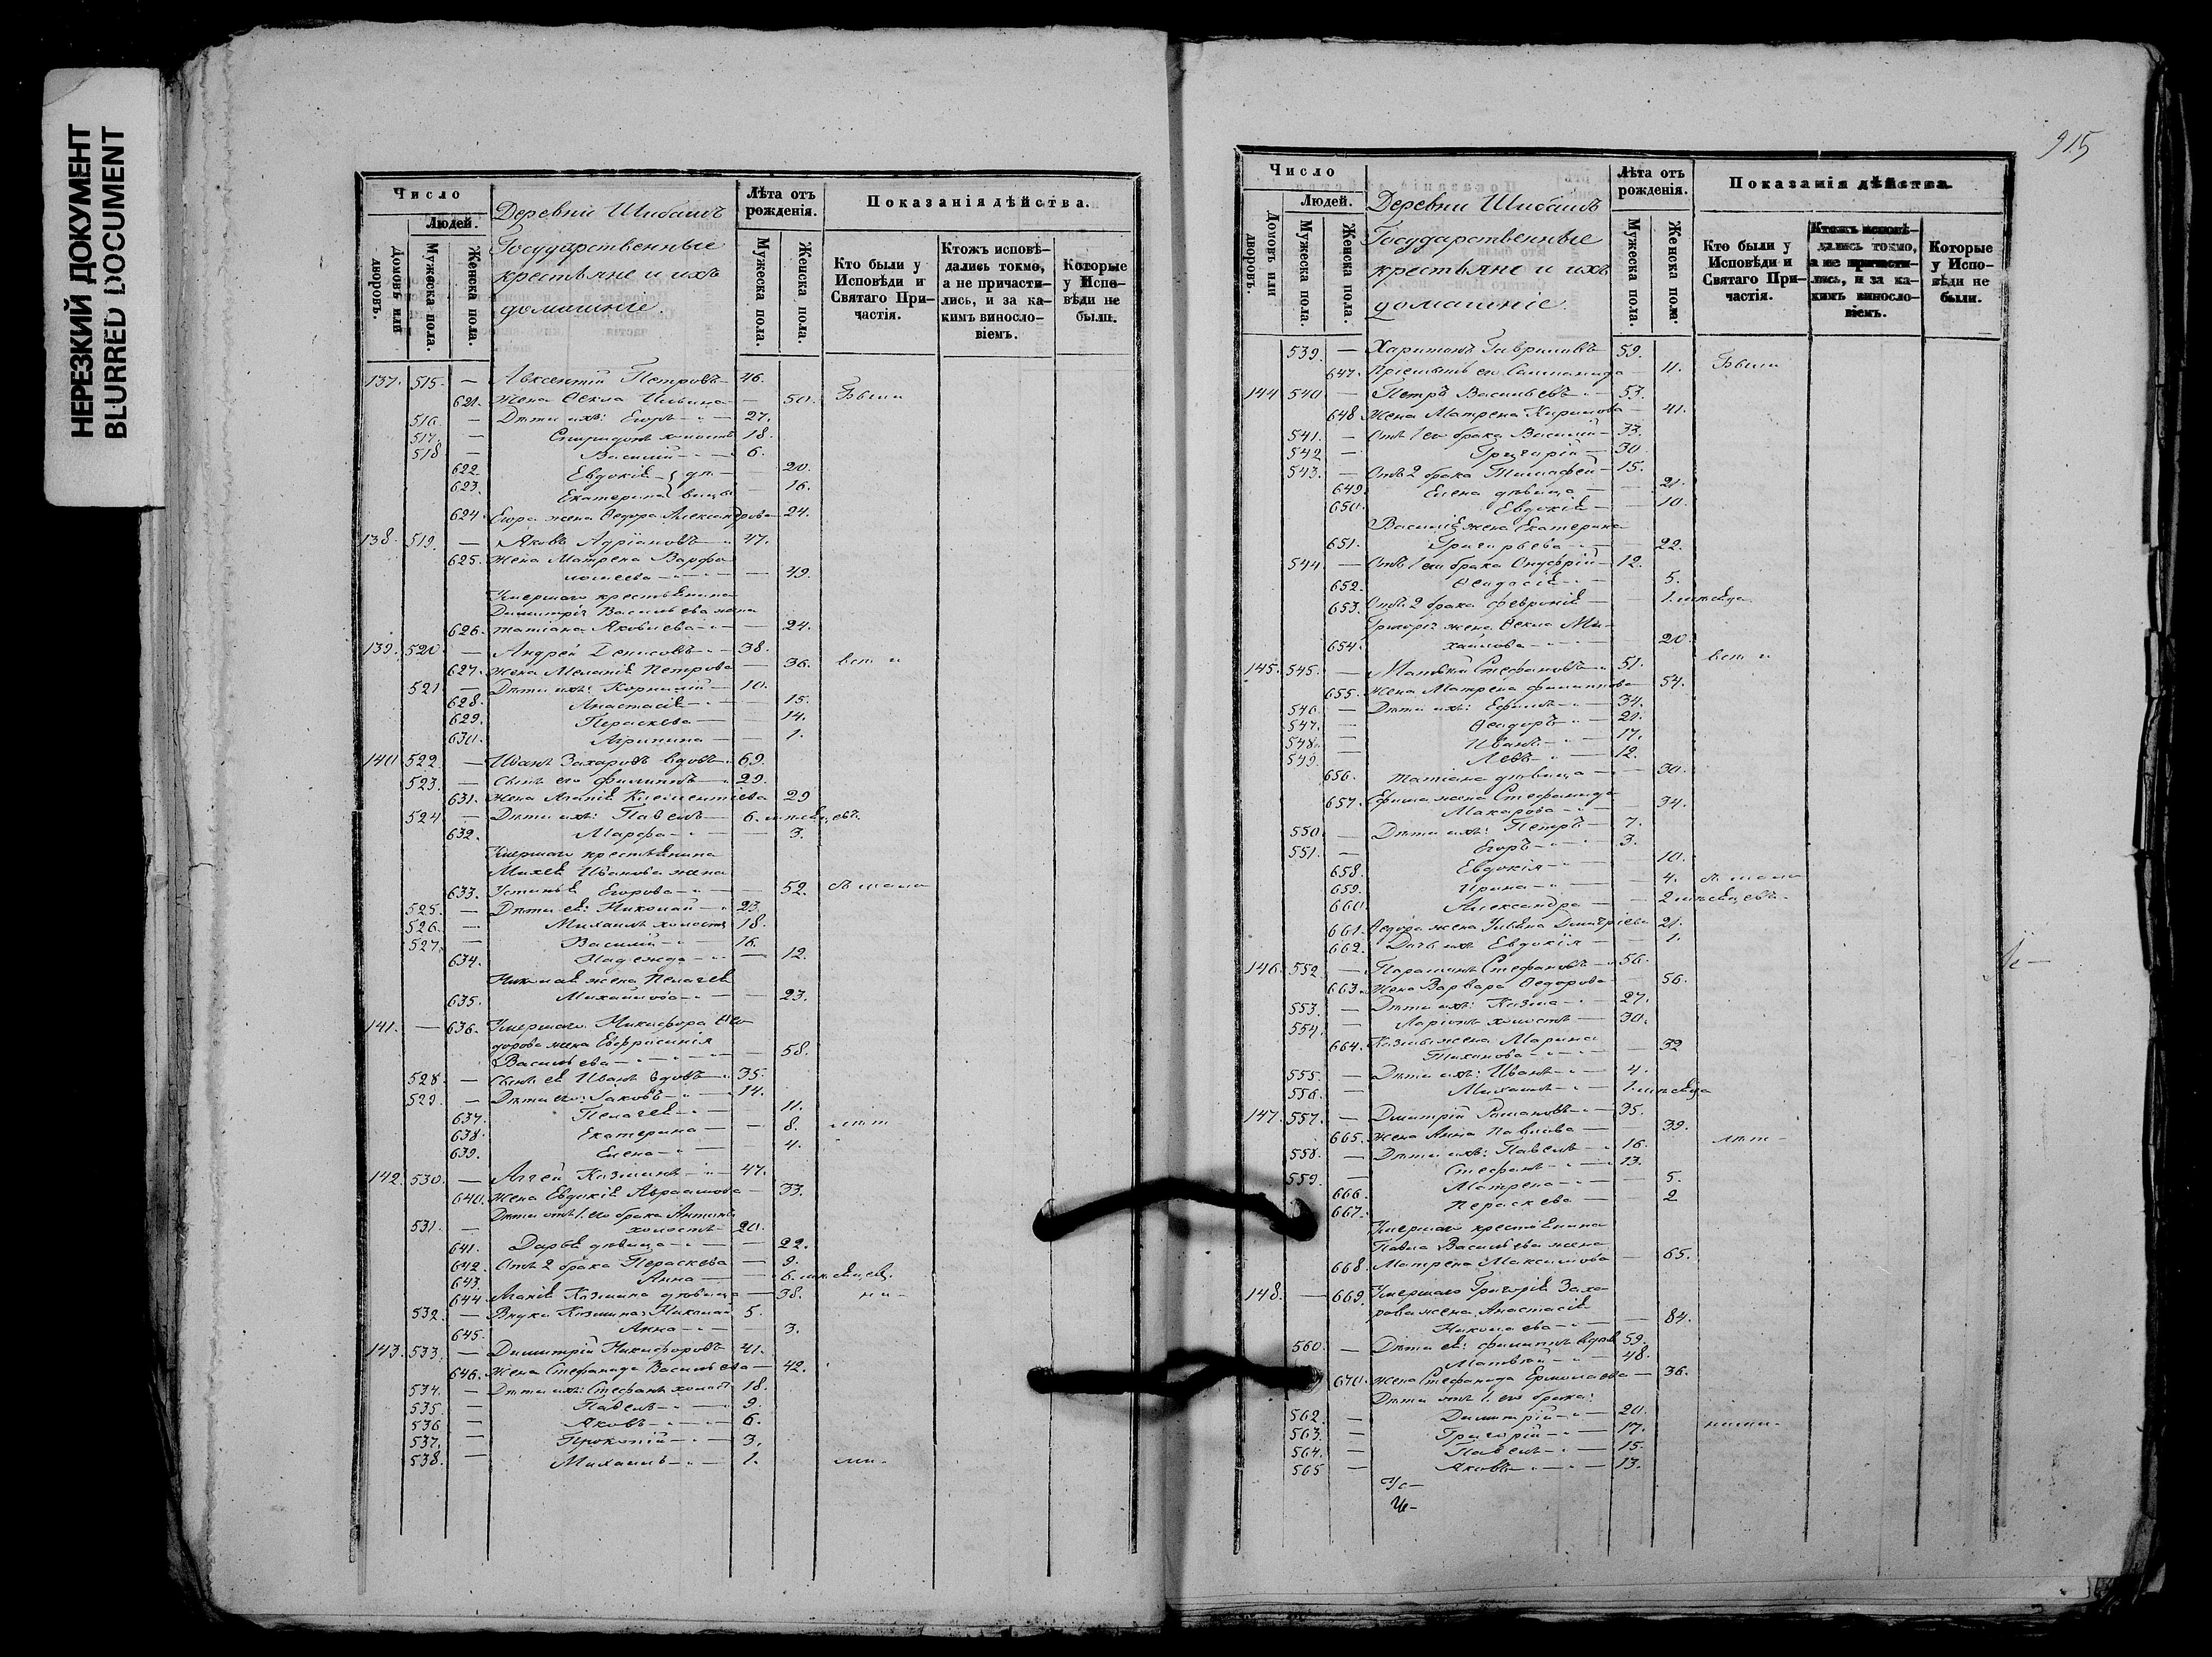 НЕРЕЗКИЙ ДОКУМЕНТ
BLURRED DOCUMENT
Число
Людей.
Домовъ или дворовъ.
Мужеска пола.
Женска пола.
Деревни Шибаихъ
Государственные
крестьяне и ихъ
домашніе.
Лѣта отъ рожденія.
Мужеска пола.
Женска пола.
Показанія дѣйства.
Кто были у Исповѣди и Святаго Причастія.
Ктожъ исповѣдались токмо, а не причастились, и за какимъ винословіемъ.
Которые у Исповѣди не были.
137. 515. — Авксентій Петровъ 46.
621. Жена Ѳекла Ильина — 50. Были
516. — Дѣти ихъ: Егоръ 27.
517. — Спиридонъ холостъ 18.
518 — Василій 6.
622. Евдокія 20.
623. Екатерина дѣвицы — 16.
624. Егора жена Ѳедора Александрова 24.
138. 519. — Яковъ Адріановъ 47.
625. Жена Матрена Варфо
ломеева — 49.
Умершаго крестьянина
Димитрія Васильева жена
626. Татіана Яковлева — 24.
139. 520. — Андрей Денисовъ 38.
627. Жена Меланія Петрова — 36.
521. — Дѣти ихъ: Корнилій 10.
628. Анастасія — 15.
629. Параскева — 14.
630. Агрипина — 1.
140 522. — Иванъ Захаровъ вдовъ 69.
523. — Сынъ его Филиппъ 29.
631. Жена Агапія Климентіева 29
524 — Дѣти ихъ: Павелъ 6. мѣсяцевъ.
632. Марфа — 3.
Умершаго крестьянина
Михея Иванова жена
633. Устинья Егорова — 52.
525. — Дѣти ея: Николай 23.
526. — Михаилъ холосты 18.
527. — Василій 16.
634. Надежда — 12.
Николая жена Пелагея
635. Михайлова — 23.
141. — 636. Умершаго Никифора Ѳео
дорова жена Евфросинія
Васильева — 58.
528. — Сынъ ея Иванъ вдовъ 35.
529. — Дѣти его: Іаковъ 14.
637. Пелагея 11.
638. Екатерина — 8.
639. Елена — 4.
142. 530. — Алексѣй Козминъ 47.
640. Жена Евдокія Авраамова — 33.
Дѣти отъ 1. его брака Антонъ
531. — холостъ 20.
641. Дарья дѣвица — 22.
642. Отъ 2 брака Параскева — 9.
643. Анна — 6. мѣсяцев.
644. Агапія Козмина дѣвица — 38.
532. — Внуки Козмина: Николай 5.
645. Анна — 3.
143. 533. — Димитрій Никифоровъ 41.
646. Жена Стефанида Васильева — 42.
534. — Дѣти ихъ: Стефанъ холост 18.
535. — Павелъ 9.
536 — Яковъ 6.
537. — Прокопій 3.
538. — Михаилъ 1.
915
Число
Людей.
Домовъ или дворовъ.
Мужеска пола.
Женска пола.
Деревни Шибаихъ
Государственные
крестьяне и ихъ
домашніе.
Лѣта отъ рожденія.
Мужеска пола.
Женска пола.
Показанія дѣйства.
Кто были у Исповѣди и Святаго Причастія.
Ктожъ исповѣдались токмо, а не причастились, и за какимъ винословіемъ.
Которые у Исповѣди не были.
539. — Харитонъ Гавриловъ 59.
647. 11. Были
144 540 — Петръ Васильевъ 53.
648 Жена Матрена Кирилова 41.
541. — Отъ 1 его брака Василій 33.
542 — Григорій 30.
543. — Отъ 2 брака Тимофей 15.
649. Елена дѣвица — 21.
650. Евдокія — 10.
Василія жена Екатерина
651. Григорьева — 22.
544 — Отъ 1 его брака Онуфрій 12.
652. Ѳеодосія 5.
653. Отъ 2 брака Февронія — 1. мѣсяца
Григорія жена Ѳекла Ми-
654. хаилова — 20
145. 545. — Матвѣй Стефановъ 51.
655. Жена Матрена Филиппова 54.
546 — Дѣти ихъ: Ефимъ 34.
547. — Ѳеодоръ 21.
548. — Иванъ 17.
549. Левъ 12.
656. Татіана дѣвица — 30.
657. Ефима жена Стефанида
Макарова — 34.
550 — Дѣти ихъ: Петръ 7.
551. — Егоръ 3.
658. Евдокія 10.
659. Ирина — 4.
660 Александра — 2 мѣсяцевъ
661. Ѳедора жена Ульяна Дмитріева 21.
662. Дочь ихъ Евдокія — 1.
146. 552. — Стефановъ 56.
663. Жена Варвара Ѳедорова 56.
553. — Дѣти ихъ: Козма 27.
554. — Ларіонъ холостъ 30.
664. Козмы жена Марина
Тихонова — 32
555. — Дѣти ихъ: Иванъ 4.
556. — Михаилъ 1. мѣсяца
147. 557. — Дмитрій Романовъ 35.
665. Жена Анна Павлова — 39.
558. — Дѣти ихъ: Павелъ 16.
559. — Стефанъ 13.
666. Матрена — 5.
667. Параскева — 2
Умершаго крестьянина
Павла Васильева жена
668. Матрена Максимова — 65.
148. — 669. Умершаго Григорія Заха-
рова жена Анастасія
Николаева — 84.
560. — Дѣти ея: Филиппъ вдов 59.
Матвѣй 48.
670. Жена Стефанида Ермолаева — 36.
Дѣти отъ 1. его брака:
562. — Димитрій 20.
563. — Григорій 17.
564. — Павелъ 15.
565 — Яковъ 13.